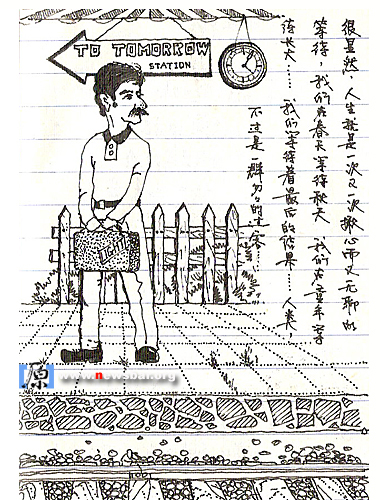 TO TOMORROW
STATION
很显然，人生就是一次又一次揪心而又无聊的
等待，我们在春天等待秋天，我们在童年等
待长大…… 我们等待着最后的结果…… 人类，
不过是一群匆匆的过客……
原